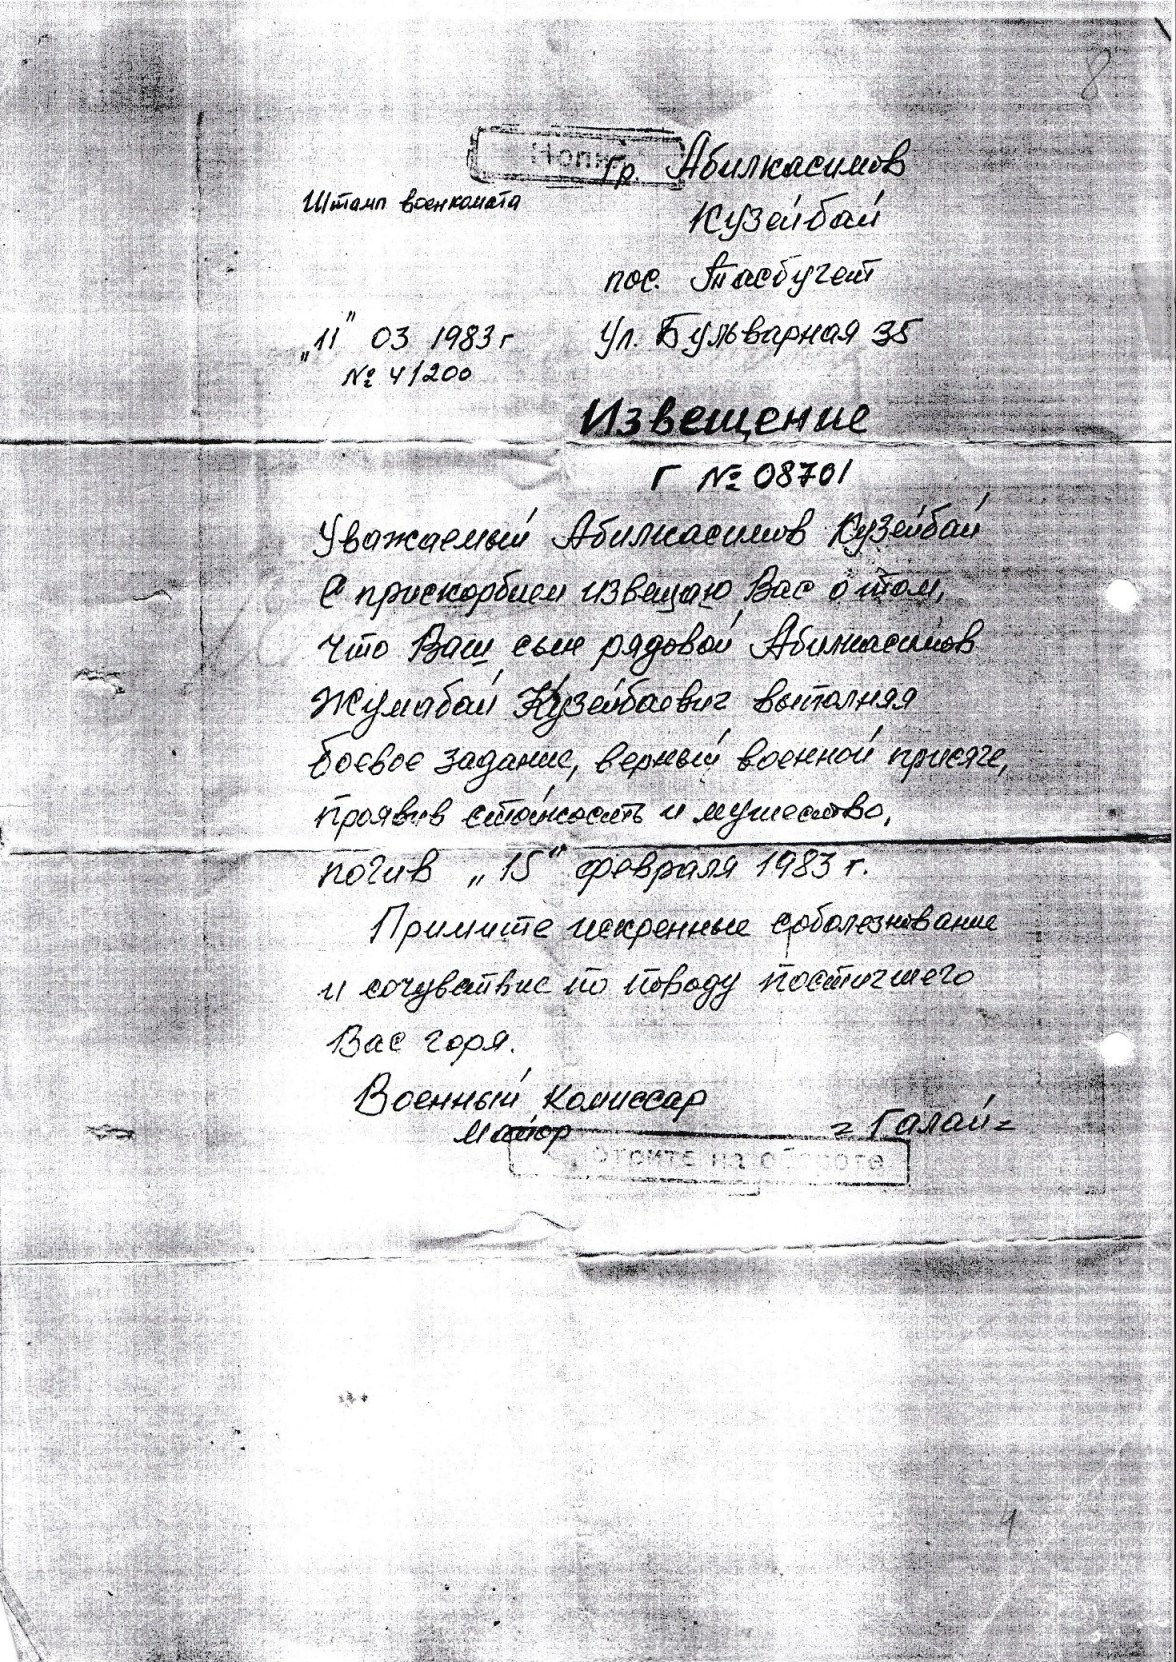 8
Копия
Гр. Абилкасимов
Штамп военкомата
Кузейбай
пос. Тасбугет
"11" 03 1983 г
ул. Бульварная 35
№ 4/200
Извещение
Г № 08701
Уважаемый Абилкасимов Кузейбай
С прискорбием извещаю Вас о том,
что Ваш сын рядовой Абилкасимов
Жумабай Кузейбаевич выполняя
боевое задание, верный военной присяге,
проявив стойкость и мужество,
погив „15" февраля 1983 г.
Примите искренные соболезнование
и сочувствие по поводу постигшего
Вас горя.
Военный комиссар
Майор = Галай =
отрите на обороте
4